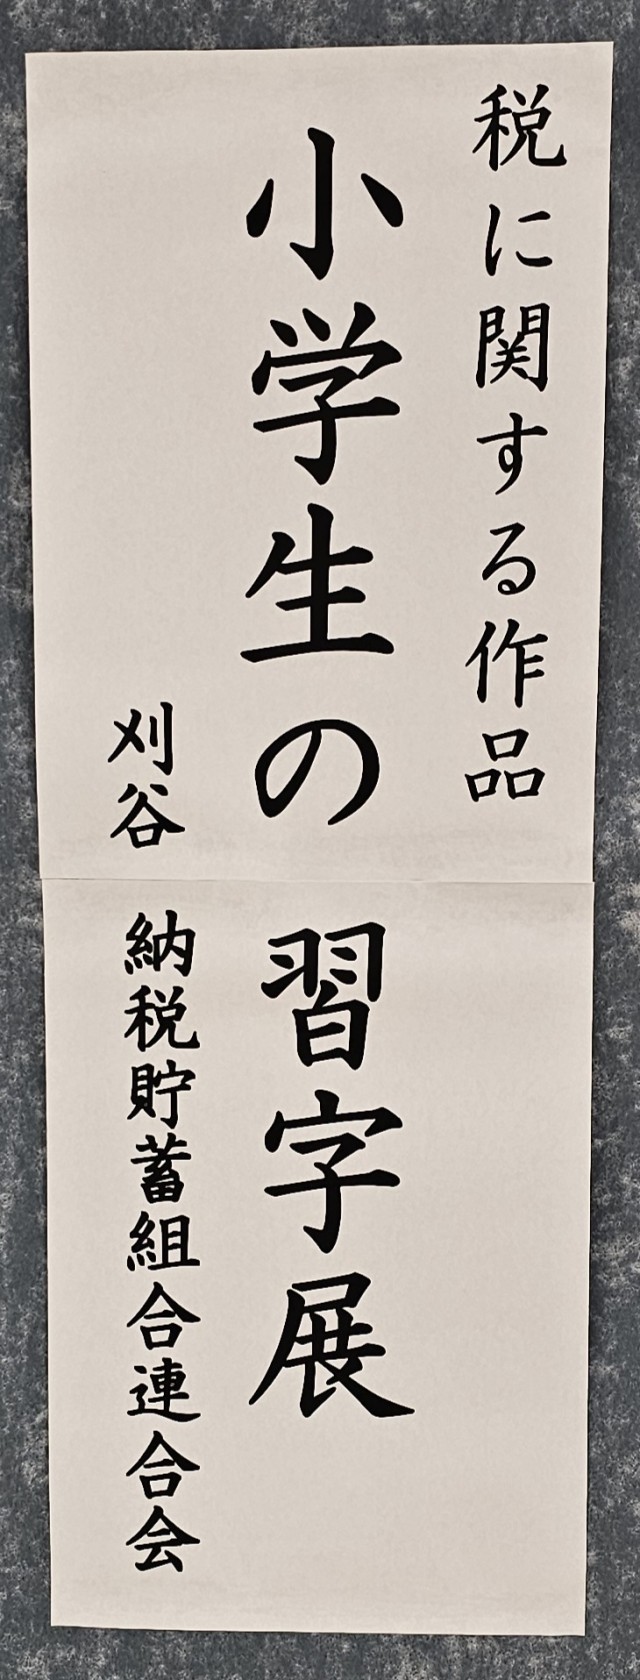 税に関する作品
小学生の習字展
刈谷納税貯蓄組合連合会